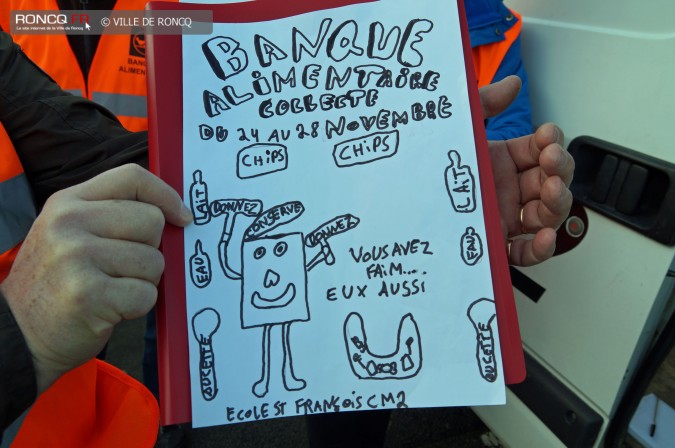 RONCQ.FR
Le site internet de la Ville de Roncq
© VILLE DE RONCQ
BANQUE
ALIMENTAIRE
COLLECTE
DU 24 AU 28 NOVEMBRE
CHIPS
CHIPS
LAIT
DONNEZ
CONSERVE
DONNEZ
LAIT
EAU
VOUS AVEZ
FAIM....
EUX AUSSI
SUCETTE
SUCETTE
ECOLE ST FRANÇOIS CM2
BANQUE
ALIMENTAIRE